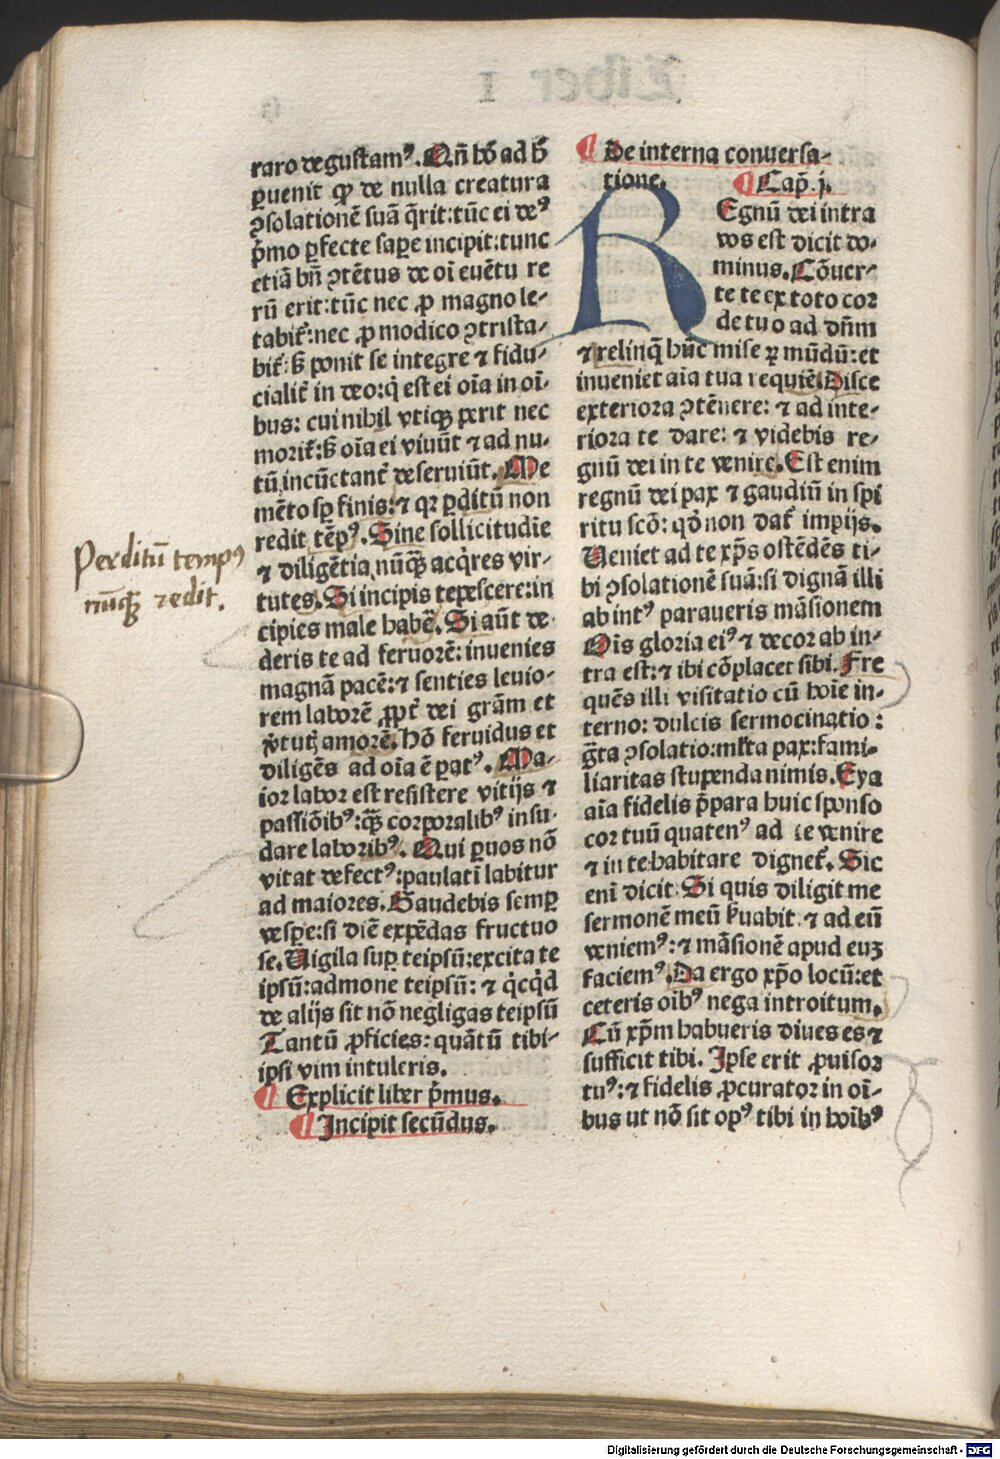 raro degustamꝰ. Qn̄ hō ad h̄
ꝑuenit ꝙ de nulla creatura
ꝯsolationē suā q̄rit: tūc ei deꝰ
p̄mo ꝑfecte saꝑe incipit: tunc
etiā bn̄ ꝯtētus de oī euētu re
rū erit: tūc nec ꝓ magno le-
tabit᷑: nec ꝓ modico ꝯtrista-
bit᷑: ß ponit se integre ⁊ fidu-
cialit᷑ in deo: q̇ est ei oīa in oī-
bus: cui nihil vtiqꝫ perit nec
morit᷑: ß oīa ei viuūt ⁊ ad nu-
tū incūctant᷑ deseruiūt. Me
mēto sꝑ finis: ⁊ qꝛ ꝑditū non
redit tēpꝰ. Sine sollicitudīe
⁊ diligētia nūqꝫ̄ acq̇res vir-
tutes. Si incipis tepescere: in
cipies male habē. Si aūt de-
deris te ad feruorē: inuenies
magnā pacē: ⁊ senties leuio-
rem laborē ꝓpt᷑ dei grām et
v̇tutꝭ amorē. Hō feruidus et
diligēs ad oīa ē ꝑatꝰ. Ma-
ior labor est resistere vitijs ⁊
passiōibꝰ: qꝫ̄ corporalibꝰ insu-
dare laboribꝰ. Qui ꝑuos nō
vitat defectꝰ: paulatī labitur
ad maiores. Gaudebis semꝑ
vesꝑe: si diē expēdas fructuo
se. Uigila suꝑ teipsū: excita te
ipsū: admone teipsū: ⁊ q̇cq̇d
de alijs sit nō negligas teipsū
Tantū ꝓficies: quātū tibi-
ipsi vim intuleris.
¶ Explicit liber p̄mus.
¶ Incipit secūdus.
Perditū tempꝰ
nūqꝫ̄ redit.
¶ De interna conuersa-
tione. ¶ Cap̄. j.
REgnū dei intra
vos est dicit do-
minus. Cōuer-
te te ex toto cor
de tuo ad dn̄m
⁊ relinq̄ hūc miseꝝ mūdū: et
inueniet aīa tua requiē. Disce
exteriora ꝯtēnere: ⁊ ad inte-
riora te dare: ⁊ videbis re-
gnū dei in te venire. Est enim
regnū dei pax ⁊ gaudiū in spi
ritu scō: qḋ non dat᷑ impijs.
Ueniet ad te xp̄s ostēdēs ti-
bi ꝯsolationē suā: si dignā illi
ab intꝰ paraueris māsionem
Oīs gloria eiꝰ ⁊ decor ab in-
tra est: ⁊ ibi cōplacet sibi. Fre
quēs illi visitatio cū hoīe in-
terno: dulcis sermocinatio:
ḡta ꝯsolatio: mł̄ta pax: fami-
liaritas stupenda nimis. Eya
aīa fidelis p̄para huic sponso
cor tuū quatenꝰ ad te venire
⁊ in te habitare dignet᷑. Sic
enī dicit. Si quis diligit me
sermonē meū ẜuabit: ⁊ ad eū
veniemꝰ: ⁊ māsionē apud euꝫ
faciemꝰ. Da ergo xp̄o locū: et
ceteris oībꝰ nega introitum.
Cū xp̄m habueris diues es ⁊
sufficit tibi. Ipse erit ꝓuisor
tuꝰ: ⁊ fidelis ꝓcurator in oī-
bus ut nō sit opꝰ tibi in hoībꝰ
Digitalisierung gefördert durch die Deutsche Forschungsgemeinschaft - DFG